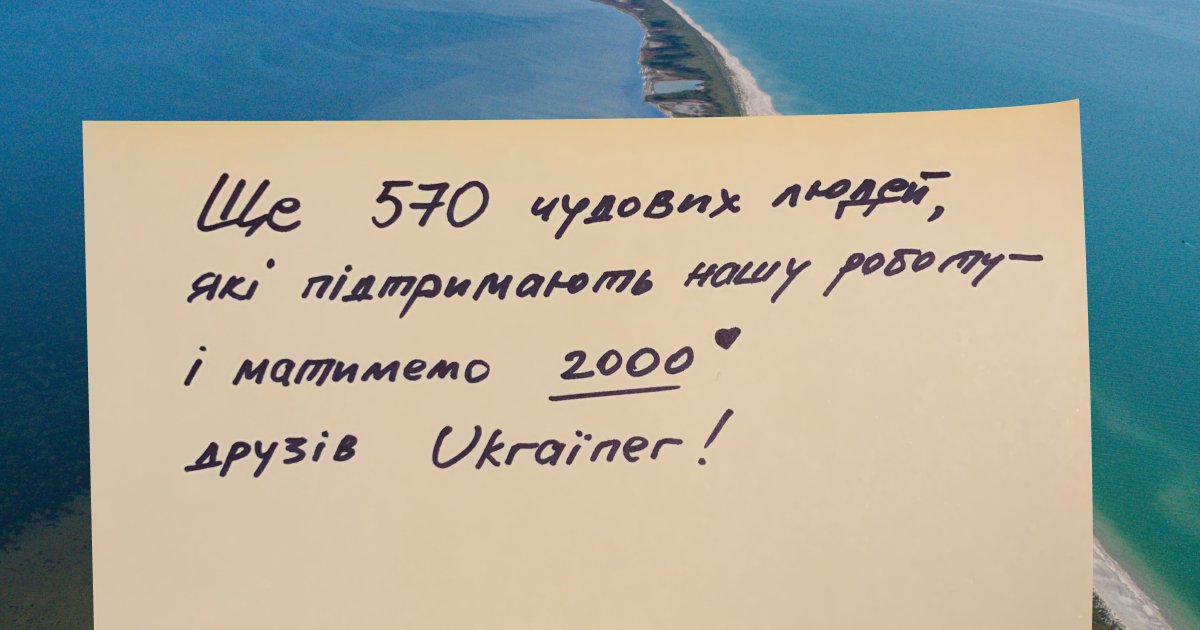 Ще 570 чудових людей,
які підтримають нашу роботу —
і матимемо 2000 ♥
друзів Ukraїner!